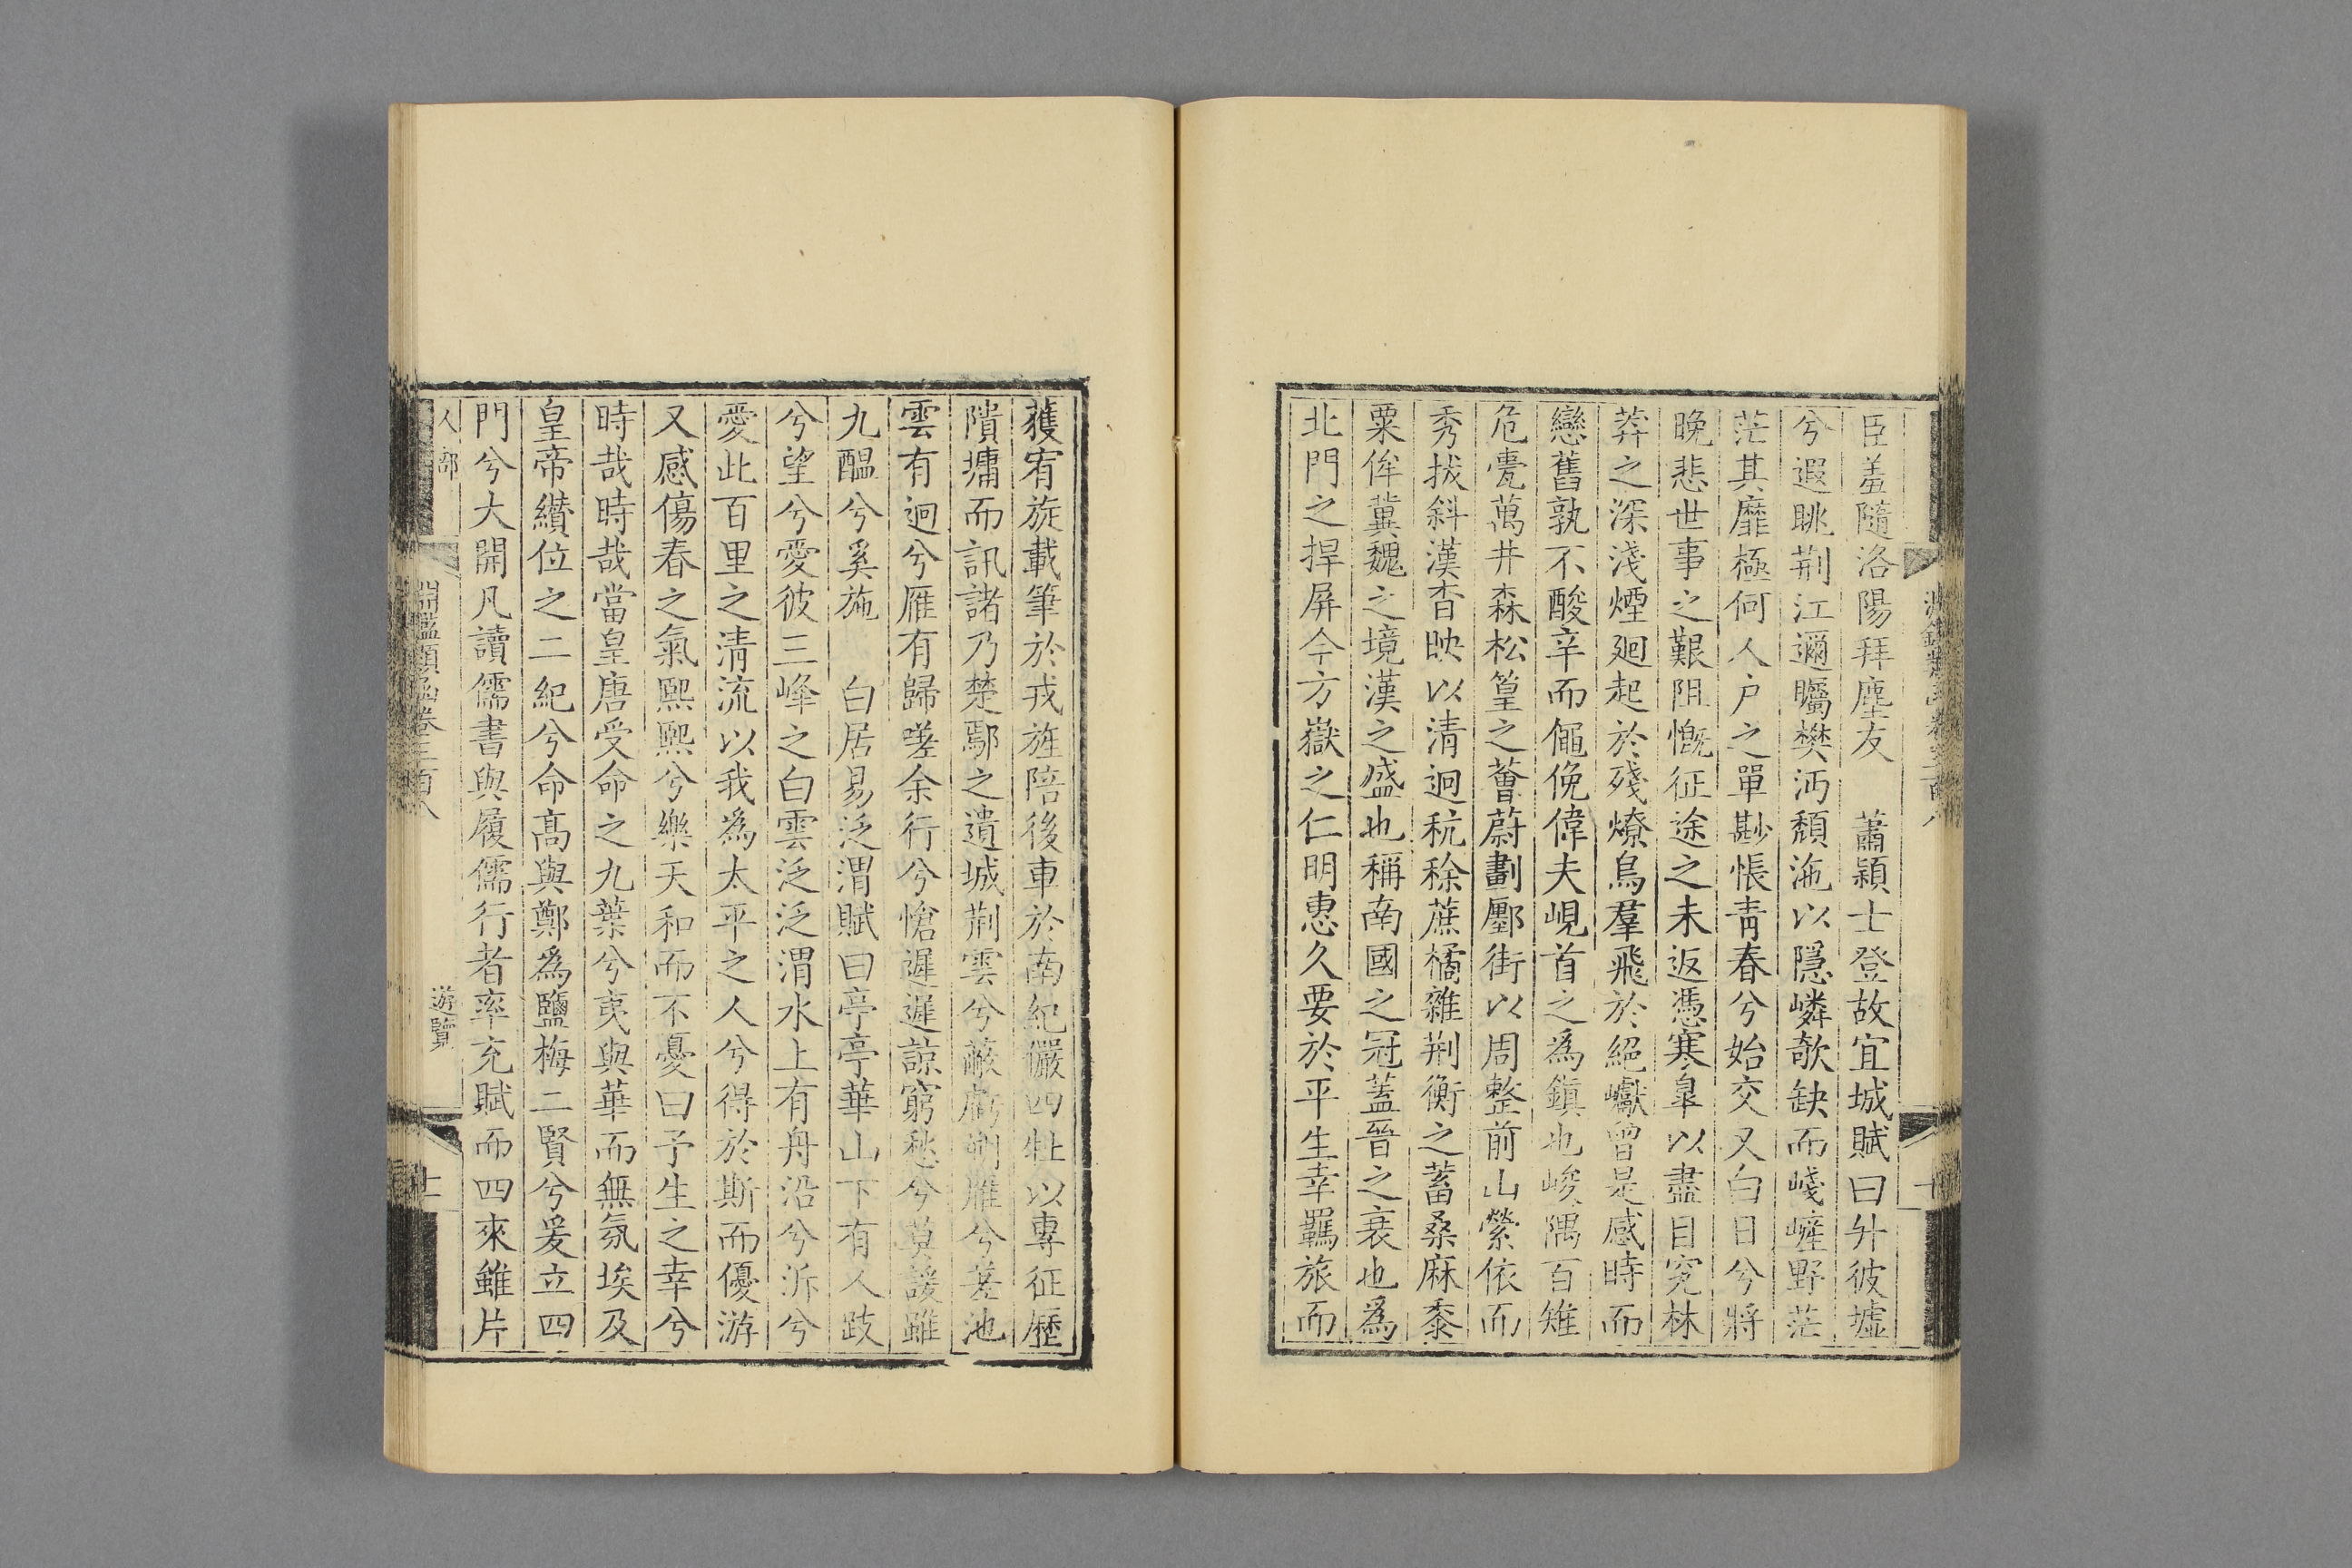 臣羞隨洛陽拜塵友　蕭穎士登故宜城賦曰升彼墟
兮遐眺荆江邇矚樊沔頽陁以隱嶙欹缺而嶘嵯野茫
茫其靡極何人戶之單尠悵青春兮始交又白日兮將
晚悲世事之艱阻慨征途之未返憑寒皐以盡目究林
莽之深淺煙廻起於殘燎鳥羣飛於絕巘曾是感時而
戀舊孰不酸辛而僶俛偉夫峴首之為鎭也峻隅百雉
危甍萬井森松篁之薈蔚劃鄽街以周整前山縈依而
秀拔斜漢杳映以清迥秔稌蔗橘雜荆衡之蓄桑麻黍
粟侔冀魏之境漢之盛也稱南國之冠蓋晉之衰也爲
北門之捍屏今方嶽之仁明惠久要於平生幸羈旅而
獲宥旋載筆於戎旌陪後車於南紀儼四牡以專征歷
隤墉而訊諸乃楚鄢之遺城荆雲兮蔽虧湘雁兮差池
雲有迴兮雁有歸嗟余行兮愴遲遲諒窮愁兮莫諼雖
九醞兮奚施　白居易泛渭賦曰亭亭華山下有人跂
兮望兮愛彼三峰之白雲泛泛渭水上有舟沿兮泝兮
愛此百里之清流以我爲太平之人兮得於斯而優游
又感傷春之氣熙熙兮樂天和而不憂曰予生之幸兮
時哉時哉當皇唐受命之九葉兮夷與華而無氛埃及
皇帝纘位之二紀兮命高與鄭爲鹽梅二賢兮爰立四
門兮大開凡讀儒書與履儒行者率充賦而四來雖片
人部
淵鑑類函卷三百八
遊覽